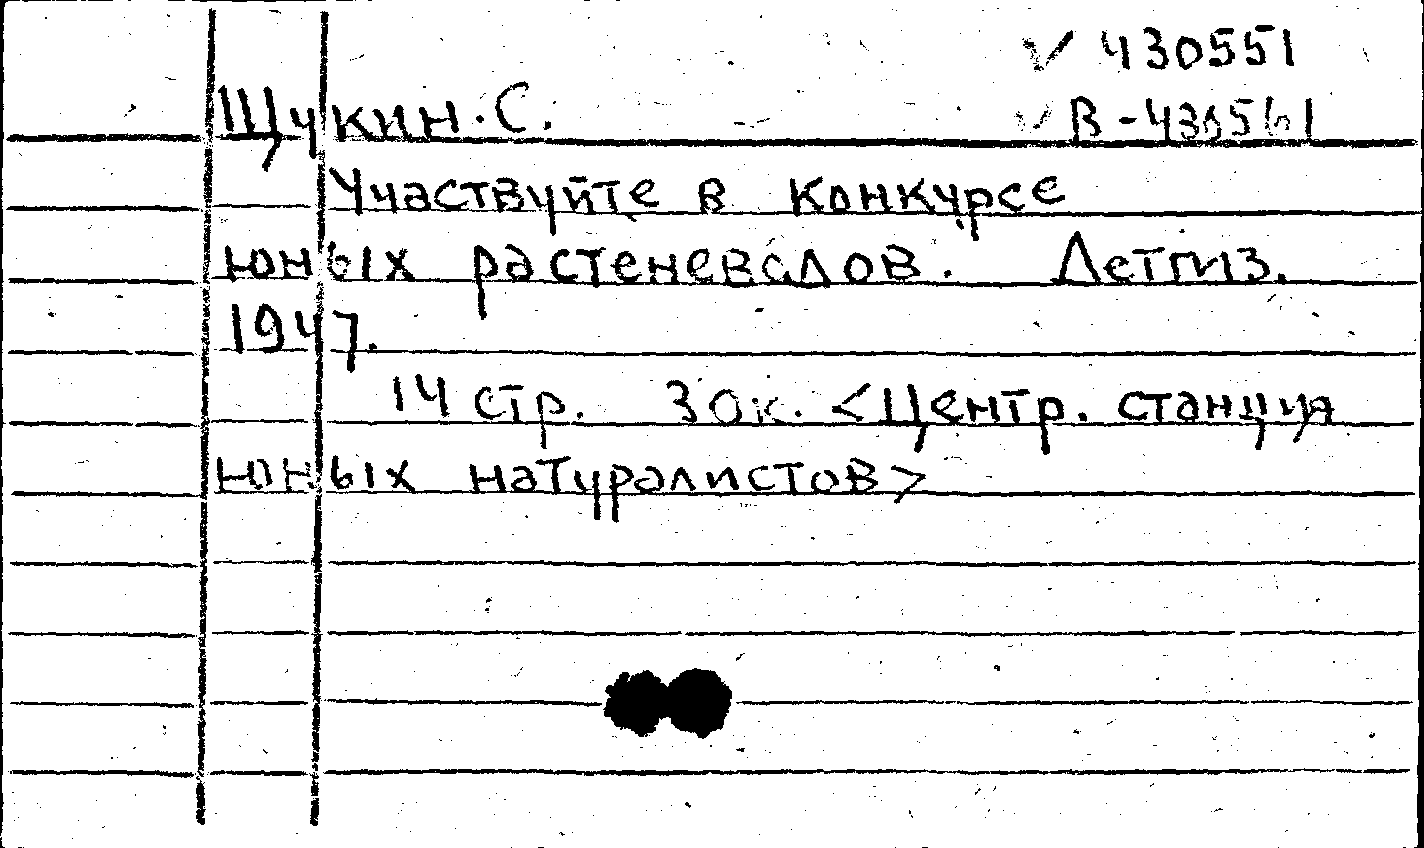 ✓ 430551
Щукин. С.
✓ В-430561
Участвуйте в Конкурсе
юных растеневадов. Детгиз.
1947.
14 стр. 30к. <Центр. станция
юных натуралистов>